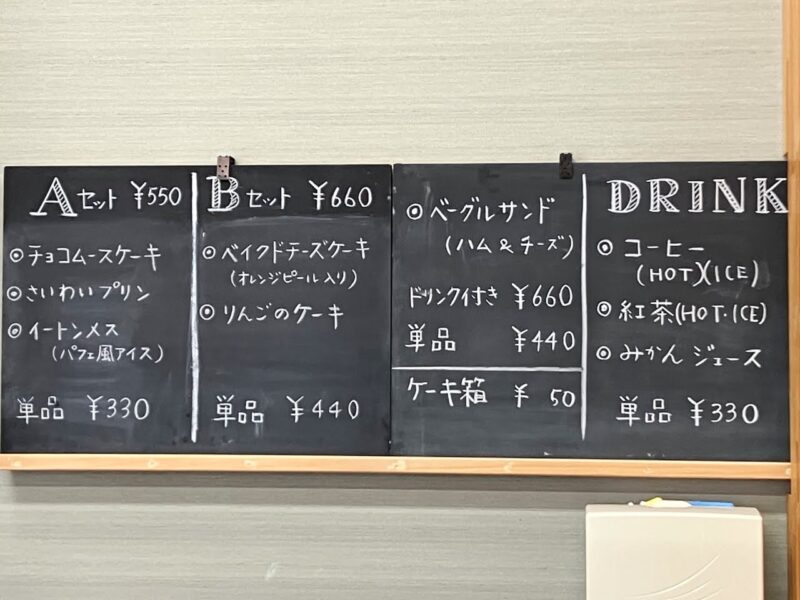 Aセット ¥550
◎チョコムースケーキ
◎さいわいプリン
◎イートンメス
(パフェ風アイス)
単品 ¥330
Bセット ¥660
◎ベイクドチーズケーキ
(オレンジピール入り)
◎りんごのケーキ
単品 ¥440
◎ベーグルサンド
(ハム&チーズ)
ドリンク付き ¥660
単品 ¥440
ケーキ箱 ¥50
DRINK
◎コーヒー
(HOT)(ICE)
◎紅茶(HOT・ICE)
◎みかんジュース
単品 ¥330